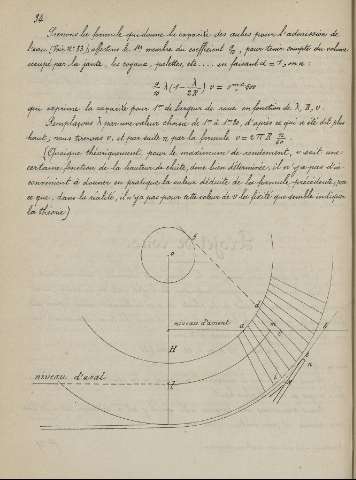 34
Prenons la formule qui donne la capacité des aubes pour l'admission de
l'eau (Voir N° 33), affectons le 1er membre du coefficient 9/10, pour tenir compte du volume
occupé par la jante, les rayons, palettes, etc .... en faisant d = 1, on a :
λ (1 - λ/2R) v =
qui exprime la capacité pour 1m de largeur de roue en fonction de λ, R, v.
Remplaçons λ par une valeur choisie de 1m à 1m20, d'après ce qui a été dit plus
haut, nous tirerons v, et par suite n par la formule v = 2πR n/60.
(Quoique théoriquement, pour le maximum de rendement, v soit une
certaine fonction de la hauteur de chute, donc bien déterminée, il n'y a pas d'in-
convénient à donner en pratique la valeur déduite de la formule précédente, par
ce que, dans la réalité, il n'y a pas pour cette valeur de v la fixité que semble indiquer
la théorie)
o
d
niveau d'amont
a
m
c
b
H
niveau d'aval
I
i
n